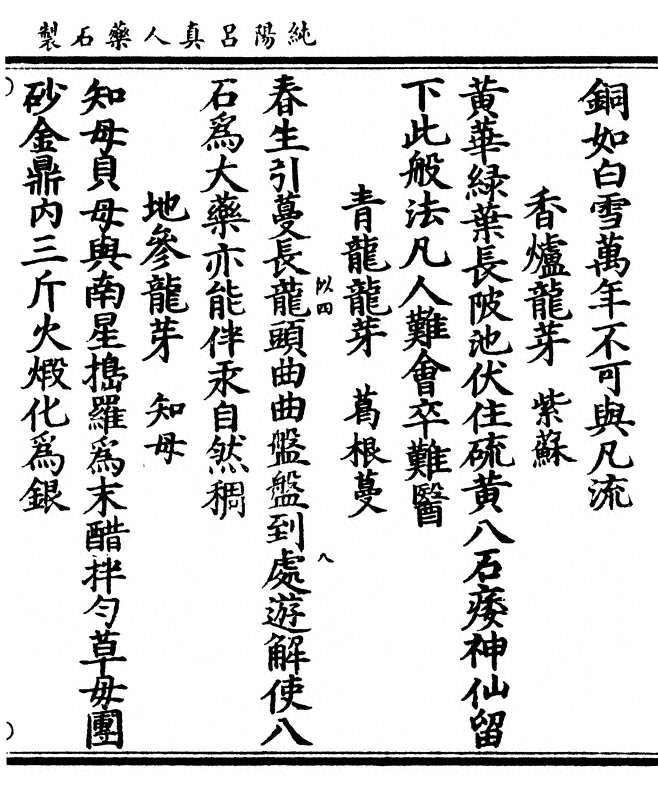 純陽呂真人藥石製
銅如白雪萬年不可與凡流
香爐龍芽　紫蘇
黃華綠葉長陂池伏住硫黃八石痿神仙留
下此般法凡人難會卒難醫
青龍龍芽　葛根蔓
春生引蔓長龍頭曲曲盤盤到處遊解使八
以四
八
石爲大藥亦能伴汞自然稠
地參龍芽　知母
知母貝母與南星搗羅爲末醋拌勻草母團
砂金鼎內三斤火煅化爲銀